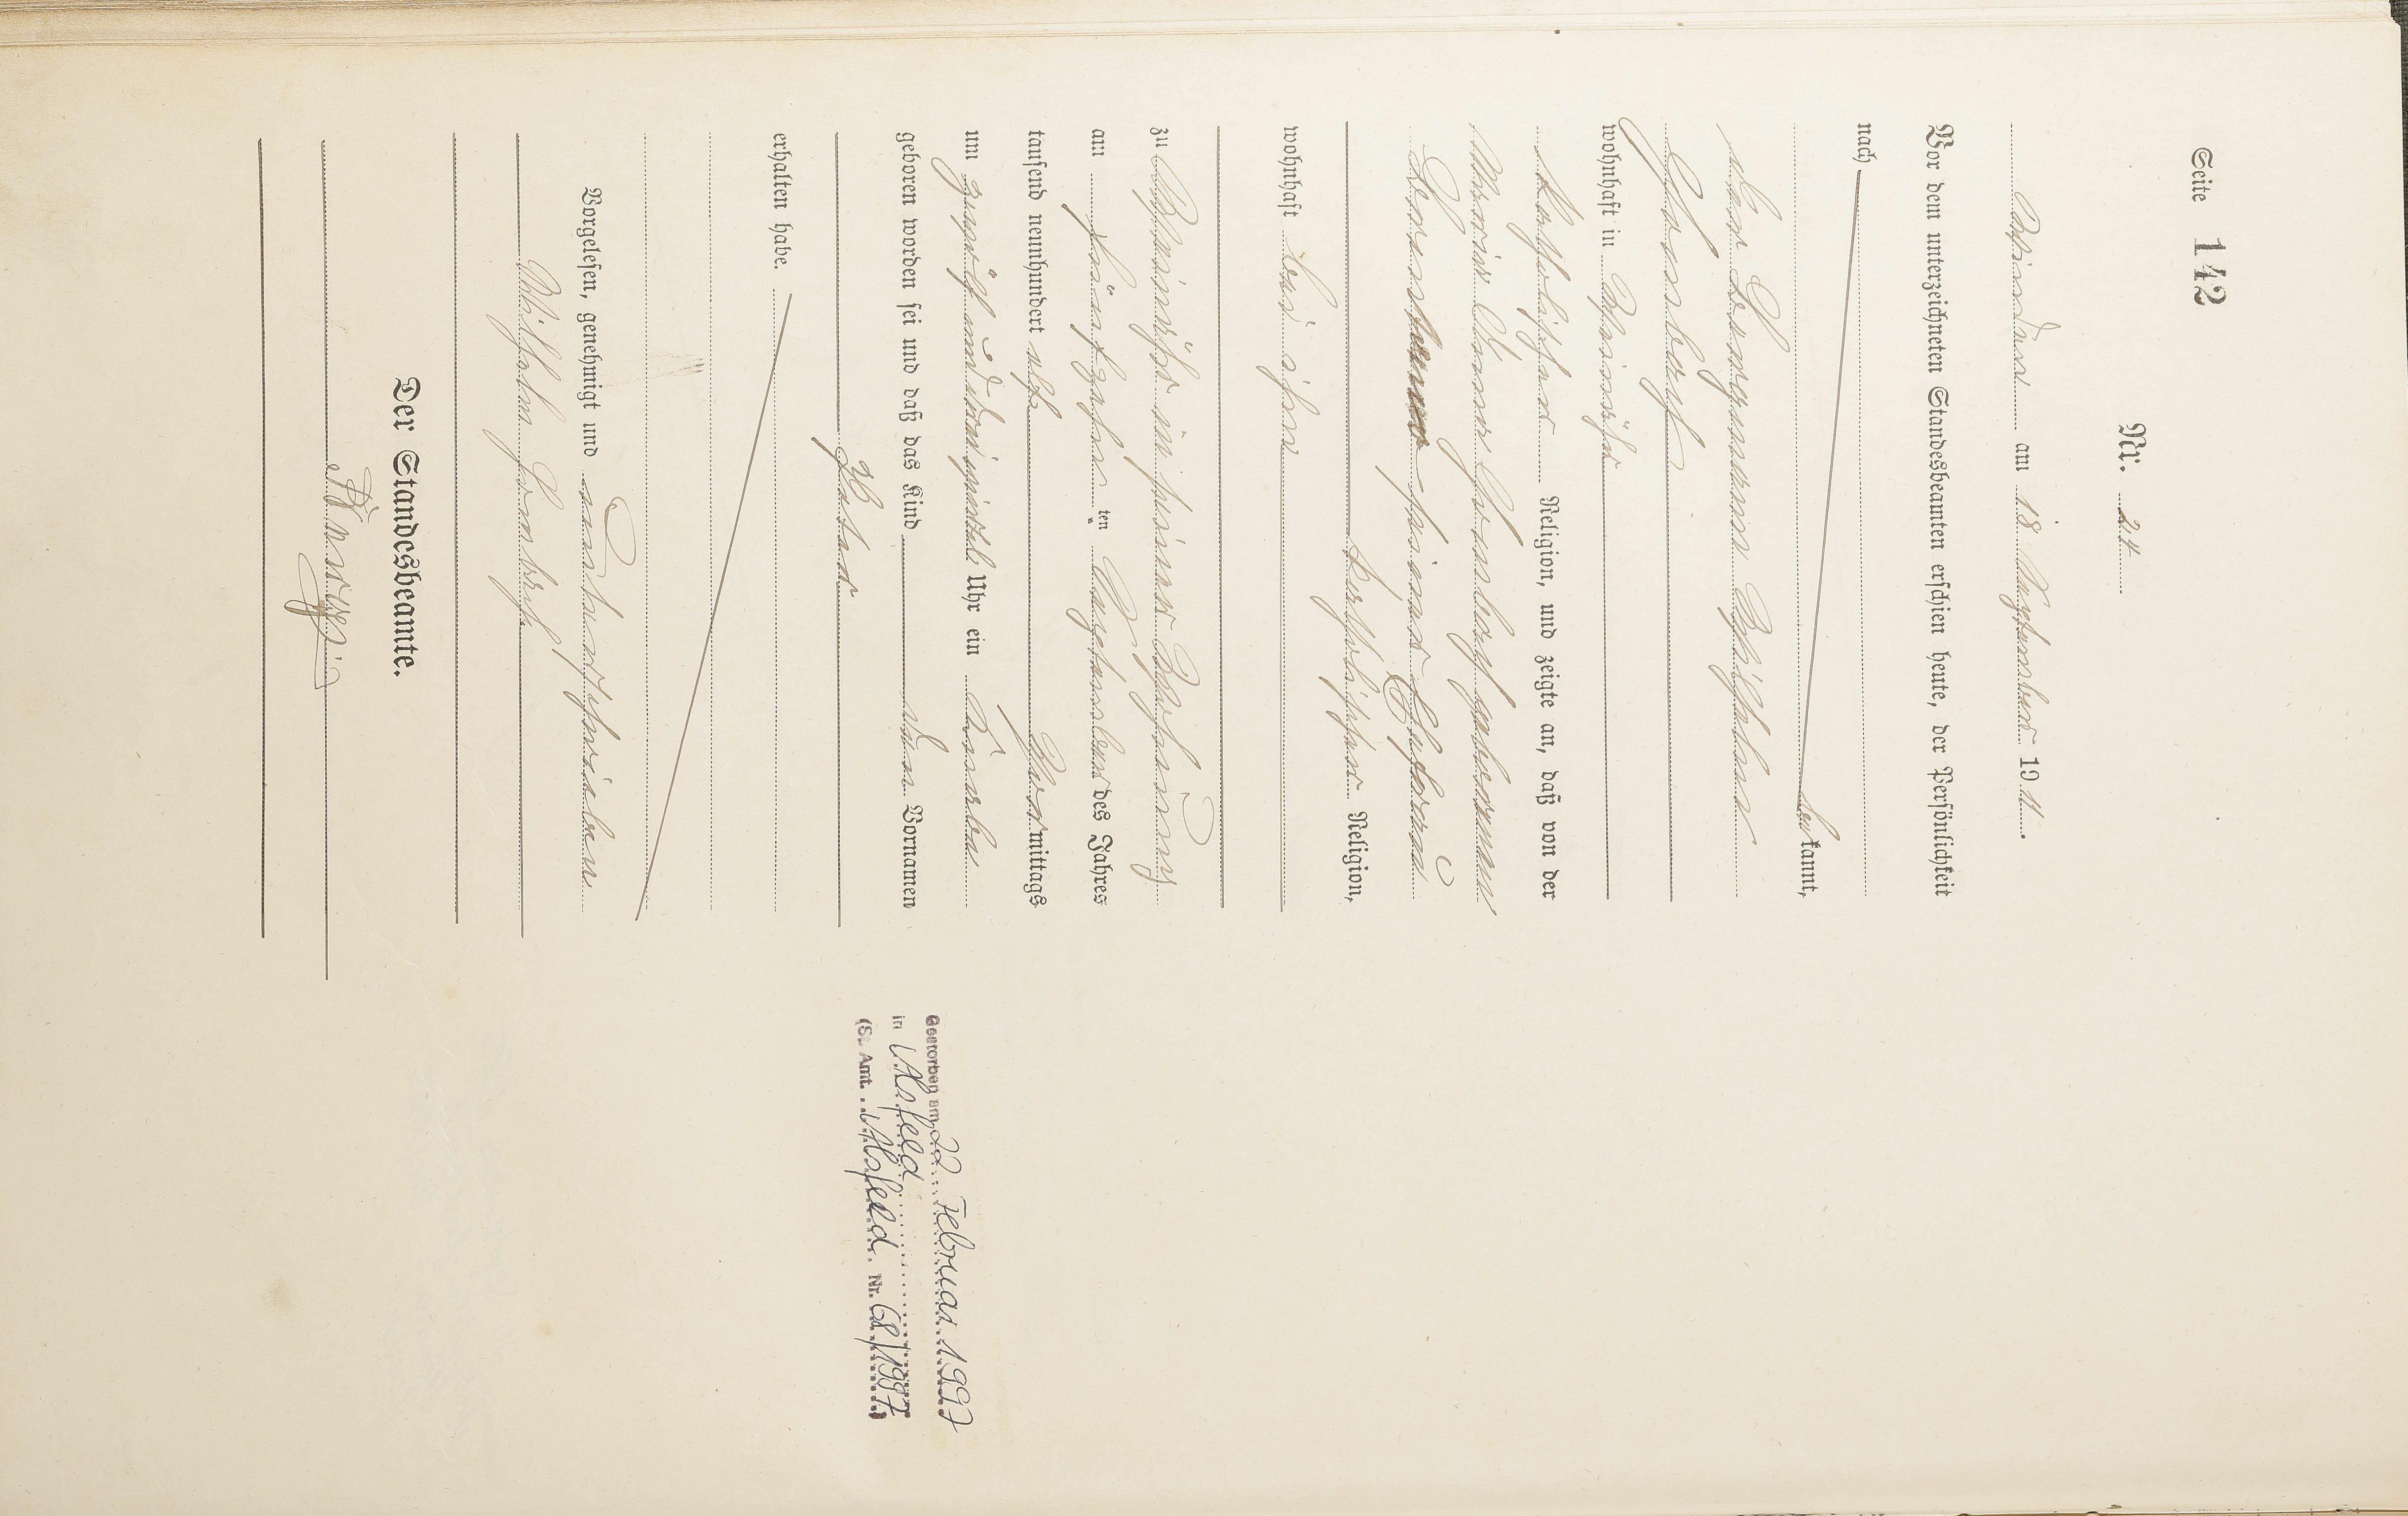 Seite 142
Nr. 24
Minden am 18 September 1911.
Vor dem unterzeichneten Standesbeamten erschien heute, der Persönlichkeit
nach
bekannt,
der Bergmann Wilhelm
wohnhaft in
katholischer Religion, und zeigte an, daß von der
Maria Anna geborenen
seiner Ehefrau
katholischer Religion,
wohnhaft bei ihm
zu in seiner Wohnung
am fünfzehn ten September des Jahres
tausend neunhundert elf Vormittags
um zwölf und dreiviertel Uhr ein Knabe
geboren worden sei und daß das Kind den Vornamen
Peter
erhalten habe.
Vorgelesen, genehmigt und unterschrieben
Wilhelm
Der Standesbeamte.
Gestorben am 22. Februar 1997
in Alsfeld
(St. Amt. Alsfeld Nr. 68/1997)